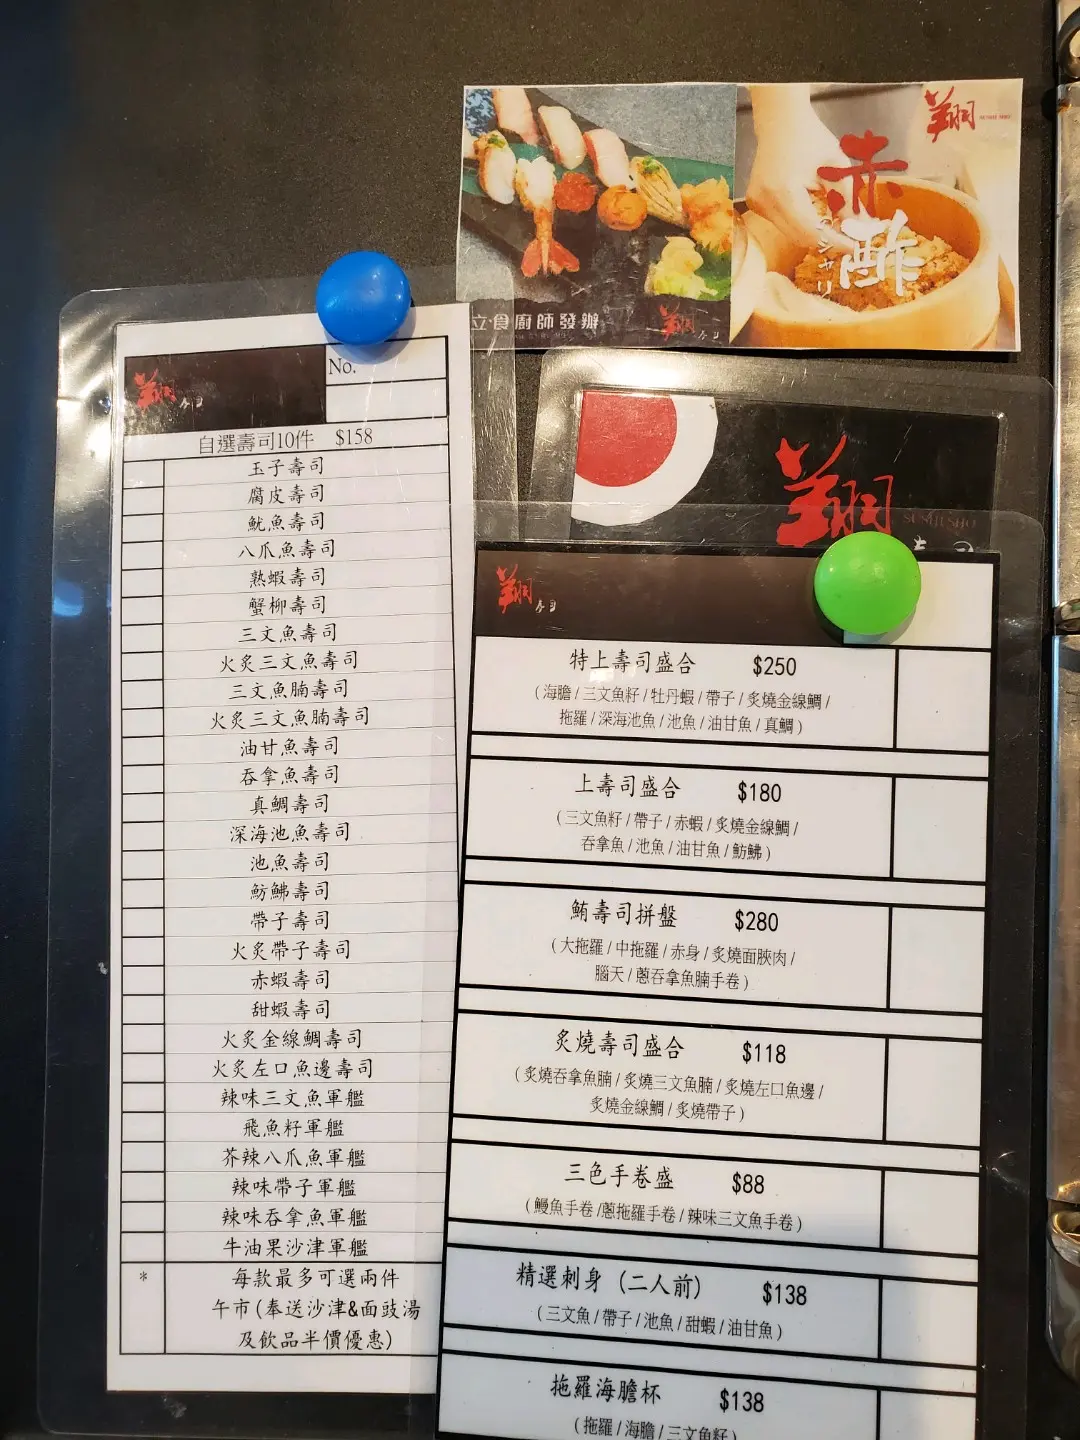 翔
SUSHI SHO
赤
酢
シャリ
立食廚師發辦
翔
翔
No.
自選壽司10件 $158
玉子壽司
腐皮壽司
魷魚壽司
八爪魚壽司
熟蝦壽司
蟹柳壽司
三文魚壽司
火炙三文魚壽司
三文魚腩壽司
火炙三文魚腩壽司
油甘魚壽司
吞拿魚壽司
真鯛壽司
深海池魚壽司
池魚壽司
魴鮄壽司
帶子壽司
火炙帶子壽司
赤蝦壽司
甜蝦壽司
火炙金線鯛壽司
火炙左口魚邊壽司
辣味三文魚軍艦
飛魚籽軍艦
芥辣八爪魚軍艦
辣味帶子軍艦
辣味吞拿魚軍艦
牛油果沙津軍艦
* 每款最多可選兩件
午市(奉送沙津&面豉湯
及飲品半價優惠)
翔
SUSHI SHO
翔
特上壽司盛合 $250
(海膽/三文魚籽/牡丹蝦/帶子/炙燒金線鯛/
拖羅/深海池魚/池魚/油甘魚/真鯛)
上壽司盛合 $180
(三文魚籽/帶子/赤蝦/炙燒金線鯛/
吞拿魚/池魚/油甘魚/魴鮄)
鮪壽司拼盤 $280
(大拖羅/中拖羅/赤身/炙燒面脥肉/
腦天/蔥吞拿魚腩手卷)
炙燒壽司盛合 $118
(炙燒吞拿魚腩/炙燒三文魚腩/炙燒左口魚邊/
炙燒金線鯛/炙燒帶子)
三色手卷盛 $88
(鰻魚手卷/蔥拖羅手卷/辣味三文魚手卷)
精選刺身 (二人前) $138
(三文魚/帶子/池魚/甜蝦/油甘魚)
拖羅海膽杯 $138
(拖羅/海膽/三文魚籽)